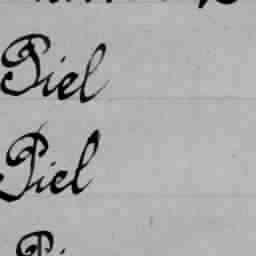 Piel
Piel
Pi